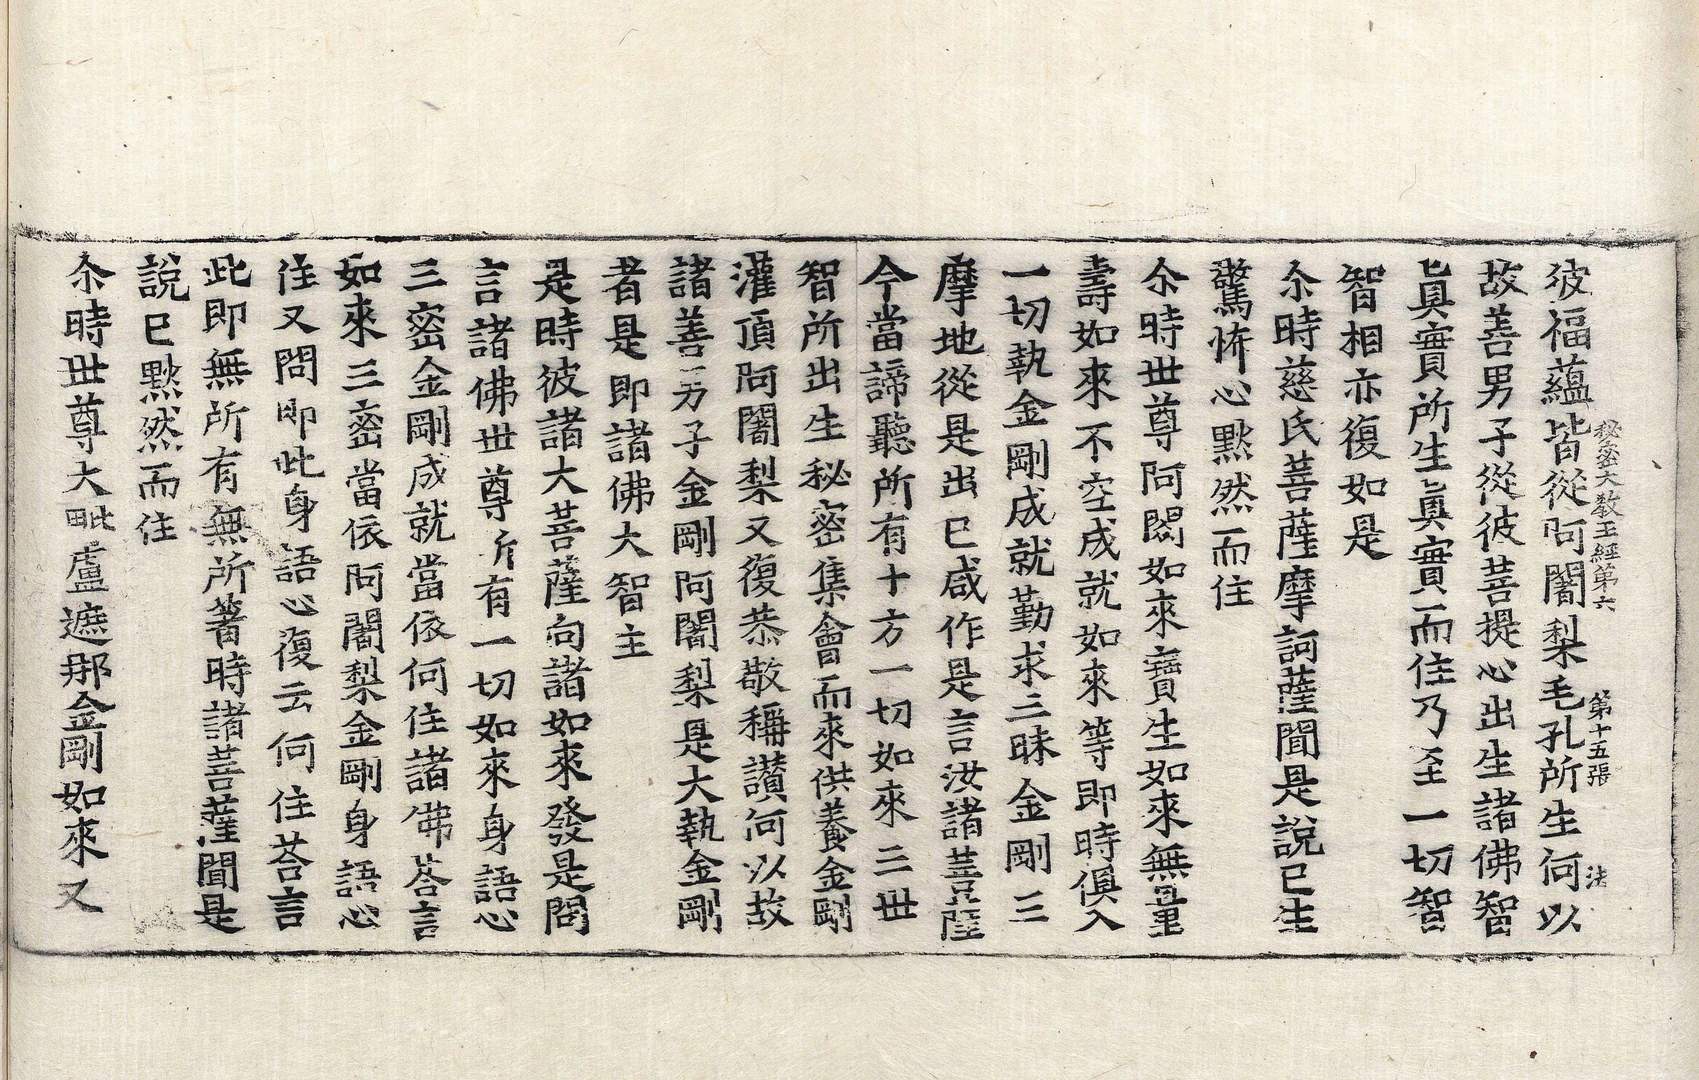 秘密大教王經第六　第十五張　法
彼福蘊皆從阿闍梨毛孔所生何以
故善男子從彼菩提心出生諸佛智
眞實所生眞實而住乃至一切智
智相亦復如是
尒時慈氏菩薩摩訶薩聞是說已生
驚怖心默然而住
尒時世尊阿閦如來寶生如來無量
壽如來不空成就如來等即時俱入
一切執金剛成就勤求三昧金剛三
摩地從是出已咸作是言汝諸菩薩
今當諦聽所有十方一切如來三世
智所出生秘密集會而來供養金剛
灌頂阿闍梨又復恭敬稱讚何以故
諸善男子金剛阿闍梨是大執金剛
者是即諸佛大智主
是時彼諸大菩薩向諸如來發是問
言諸佛世尊所有一切如來身語心
三密金剛成就當依何住諸佛荅言
如來三密當依阿闍梨金剛身語心
住又問即此身語心復云何住荅言
此即無所有無所著時諸菩薩聞是
說已默然而住
尒時世尊大毗盧遮那金剛如來又